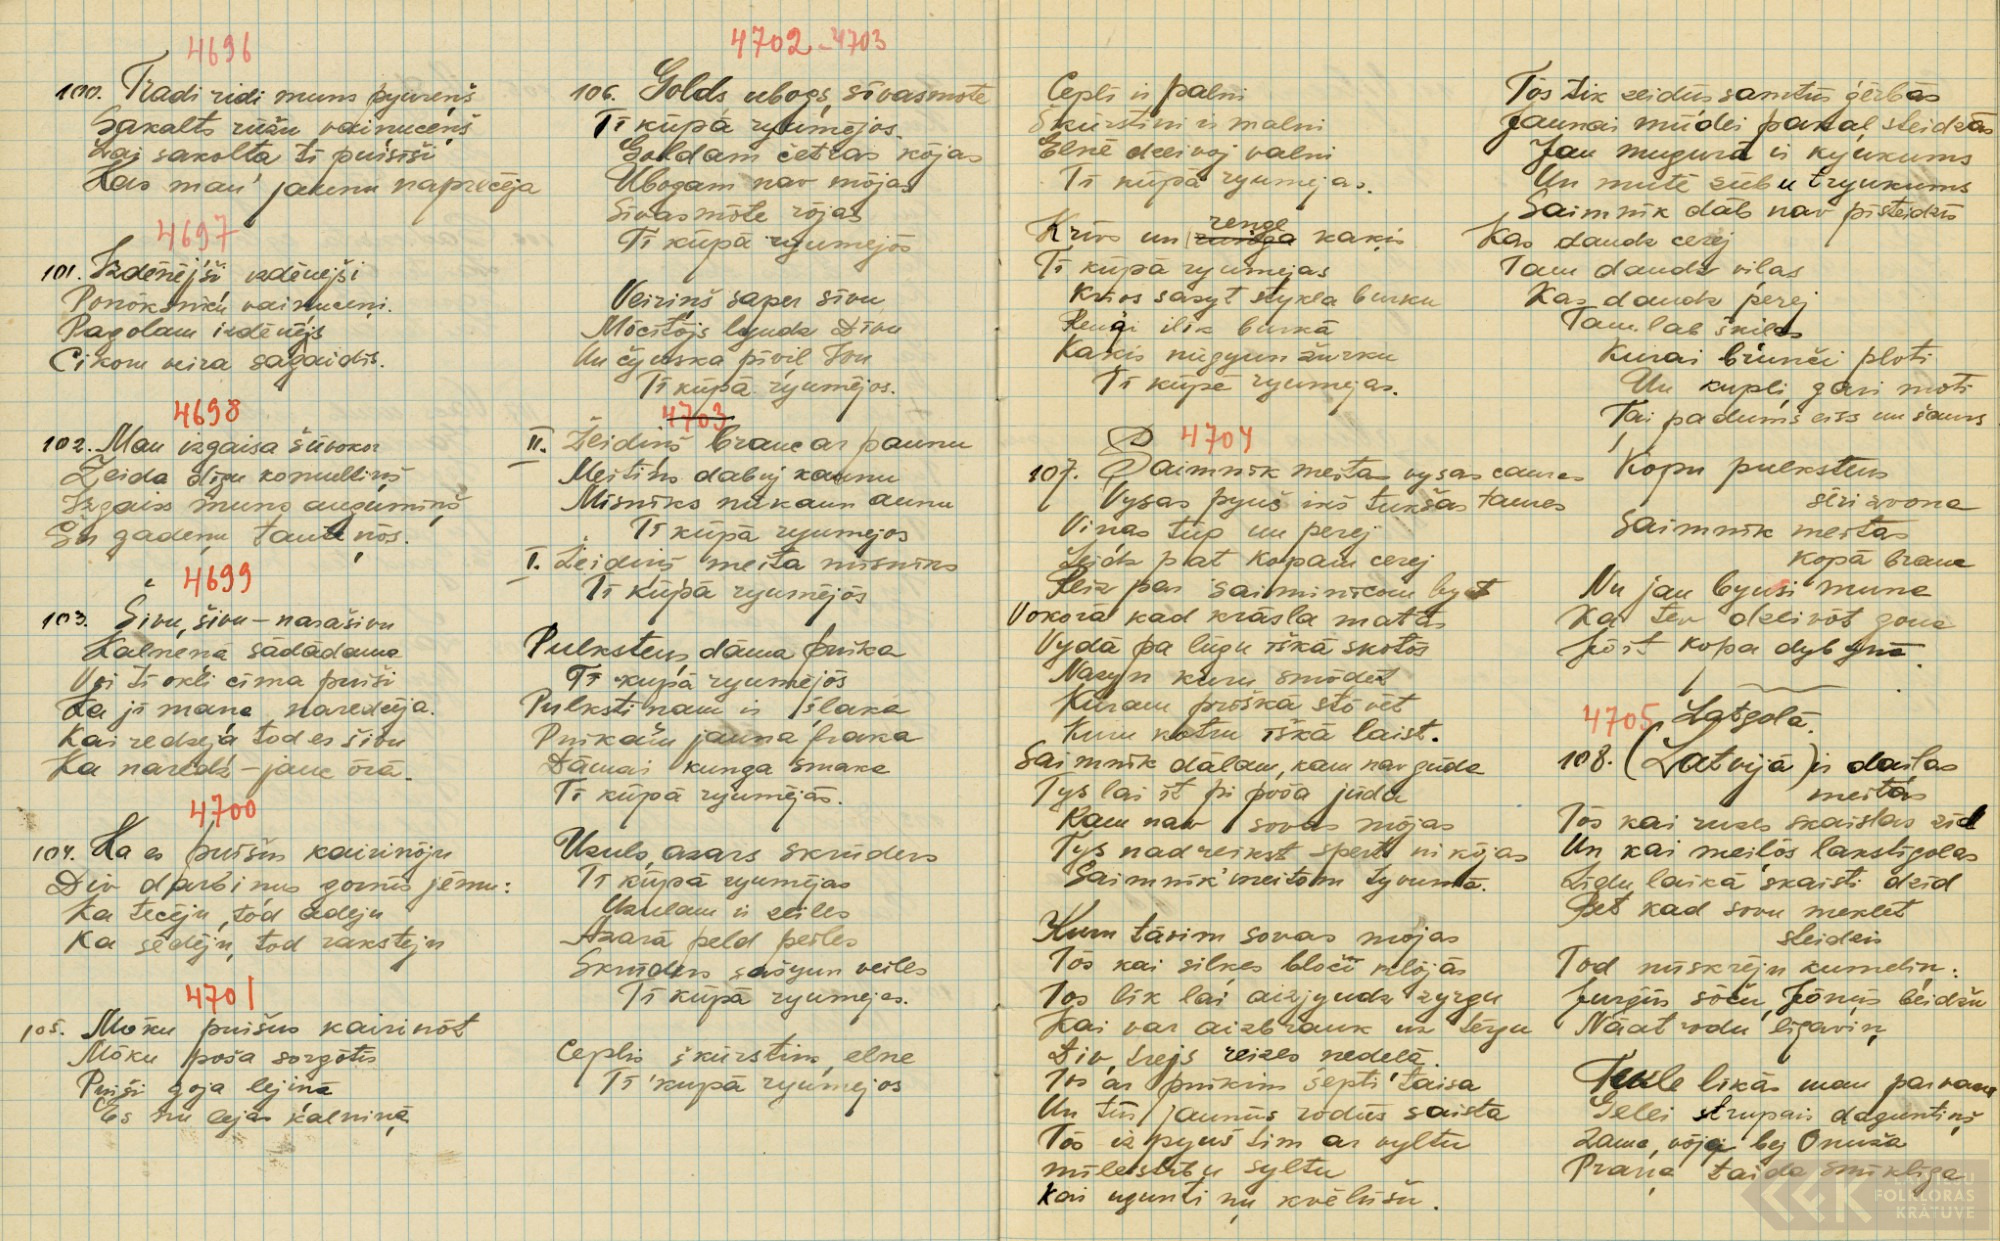 4696
100. Tradi ridi muns pyureņš
Sakalts rūžu vainuceņš
Lai sakolta tī puisiši
Kas man jaunu naprecēja
4697
101. Izdēnējši izdēnejši
Ponōkšnīku vainuceņi.
Pagolam izdēnējs
Cikom veira sagaidis.
4698
102. Man izgaisa šūvokor
Zeida dīgu komulliņš
Izgaiss muns augumiņš
Šū gadeņu tautеņōs.
4699
103. Šivu, šivu - narašivu
Kalnēnā sādādama
Voi tī okli cima puiši
Ka jī mane naredzēja.
Kai redzeja tod es šivu
Ka naredz - jauc ōrā.
4700
104. Ka es puišus kairinōju
Div darbinus gornūs jēmu:
Ka tecēju, tod adeju
Ka sēdēju, tod raksteju
4701
105. Mōku puišus kairinōt
Mōku poša sorgōtis
Puiši goja lejinā
Es nu lejas kalniņā
4702-4703
106. Golds ubogs, sīvasmōte
Tī kūpā ryumējos
Goldam četras kōjas
Ubogam nav mōjas
Sīvasmōte rōjas
Tī kūpā ryumejōs
Veiriņš saper sīvu
Mōcītōjs lyudz Dīvu
Un čyuska pīvil Ivu
Tī kūpā ryumējos.
4703
II. Žeidiņš brauc ar paunu
Meitiņs dabuj kaunu
Misniks nūkaun aunu
Tī kūpā ryumejos
I. Žeidiņš meita misnīks
Tī kūpā ryumējōs
Pulkstens, dāma puika
Tī kupā ryumejōs
Pulkstinam is šlaka
Puikam jauna fraka
Dāmai kunga smaka
Tī kūpā ryumējās.
Uzuls, azars skrūders
Tī kūpā ryumējas
Uzulam is zeiles
Azarā peld peiles
Skrūders sašyun veiles
Tī kūpā ryumejas.
Ceplis škūrstins, elne
Tī kupā ryumejos
Ceplī is palni
Škūrstini is malni
Elnē dzeivoj valni
Tī kūpā ryumejas.
renge
Krivs un runga kakis
Tī kūpā ryumejas
Krivs sasyt stykla burku
Rengi ilik burkā
Kakis nūgyun žurku
Tī kūpē ryumejas.
4704
107. Saimnīk meitas vysas caures
Vysas pyuš ins tukšas taures
Viņas tūp un perej
Leidz pat kopam cerej
Reiz par saiminicom byut
Vokorā kad krāsla matās
Vydā pa lūgu īškā skotōs
Nazyn kuru smōdēt
Kuram prīškā stōvēt
Kuru kotru īškā laist.
Saimnīk dālam, kam nav gūda
Tys lai īt pi poša jūda
Kam nav sovas mōjas
Tys nadreikst spert ni kōjas
Saimnīk meitom tyvumā.
Kuru tāvim sovas mojas
Tōs kai silkes blocī klōjās
Tos līk lai aizjyudz zyrgu
Kai var aizbrauk uz tērgu
Div, trejs reizes nedelā
Tos ar puikim septi taisa
Un tūs jaunūs rodūs saista
Tōs iz pyuš tim ar vyltu
mīlestību syltu
kai uguntiņu kvēlūšu.
Tōs tik zeidūs samtūs gērbās
Jaunai mūdei pakaļ steidzās
Jau mugurā is kyukums
Un mutē zūbu tryukums
Saimnīk dāls nav pīsteidzis
Kas daudz cerej
Tam daudz vilas
Kas daudz perej
Tam lab škilas
Kurai brunči ploti
Un kupli, gari moti
Tai padums eiss un šaurs
Kopu pulkstens
sēri zvona
Saimnīk meitas
kopā brauc
Nu jau byusi muna
Ka tev dzeivōt gona
Jōīt kopa dybynā.
4705. Latgolā.
108. (Latvijā) is dailas
meitas
Tōs kai ruzes skaistas zīd
Un kai meilōs lakstīgolas
Zīdu laikā skaisti dzīd
Bet kad sovu meklēt
steidzis
Tod nūskrēju kumelin:
Jurgūs sōču, Jōnūs beidzu
Nāatrodu ligaviņ
Tekle likās man parvacu
Gelei strupais daguntiņš
Zama, vōja bej Onuža
Praņa taida smikliga
LATVIEŠU
FOLKLORAS
KRĀTUVE